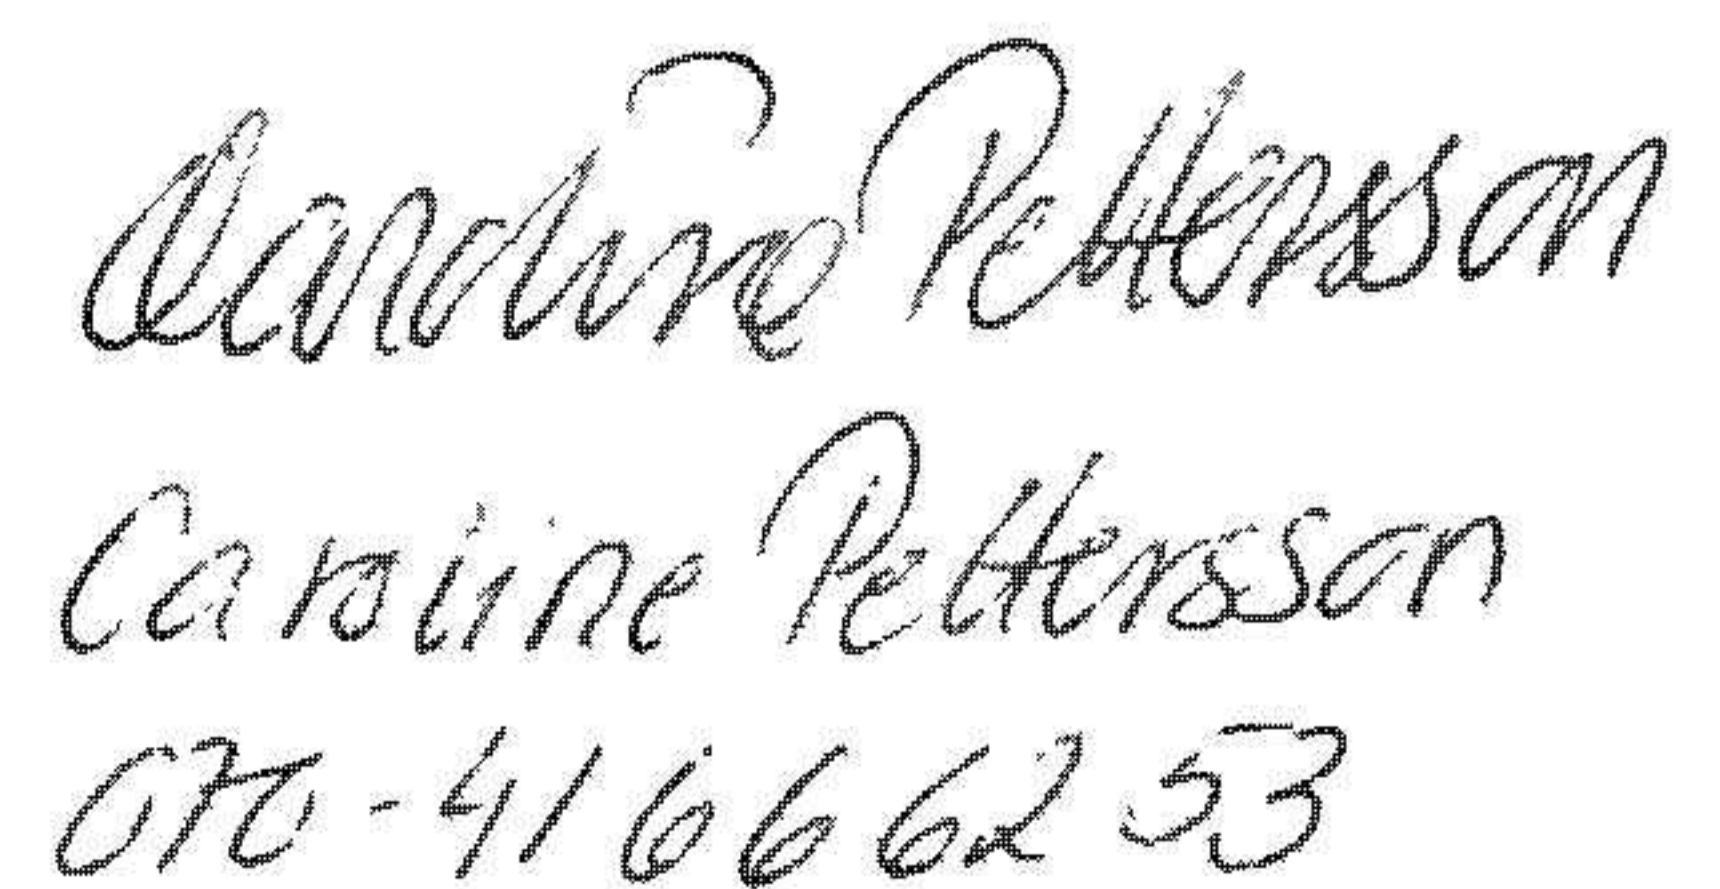 Caroline Pettersson
Caroline Pettersson
070-4166253